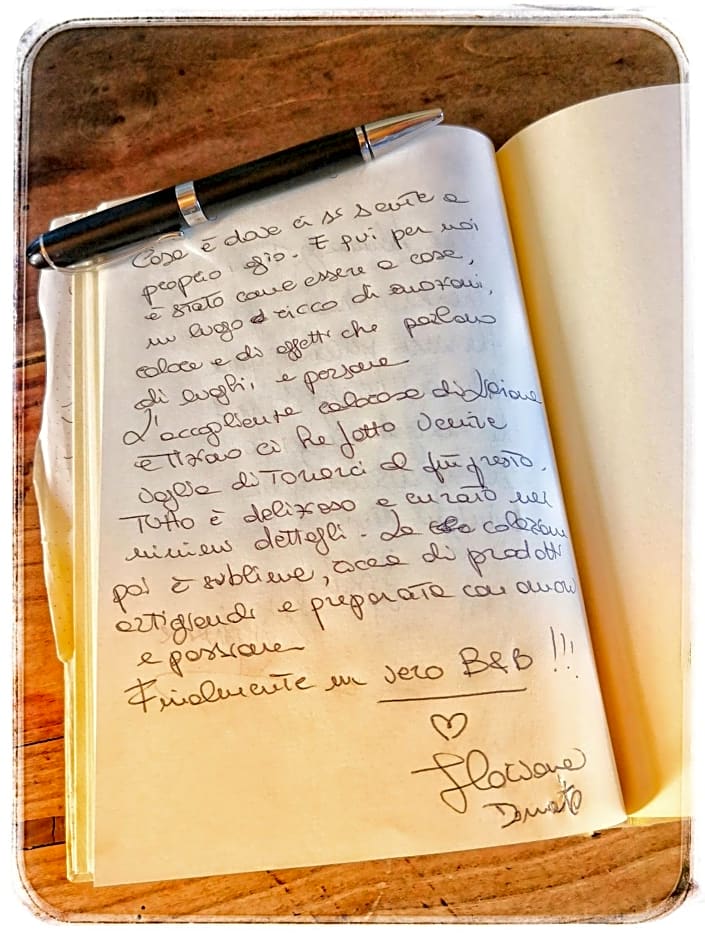 Casa è dove ci si sente a
proprio agio. E qui per noi
è stato come essere a casa,
un luogo ricco di emozioni,
calore e di oggetti che parlano
di luoghi, e persone
L'accogliente calorosa di
e ci ha fatto venire
voglia di tornarci al più presto.
Tutto è delizioso e curato nei
minimi dettagli. La colazione
poi è sublime, ricca di prodotti
artigianali e preparata con amore
e passione
Finalmente un vero B&B !!!
Floriana
Donato